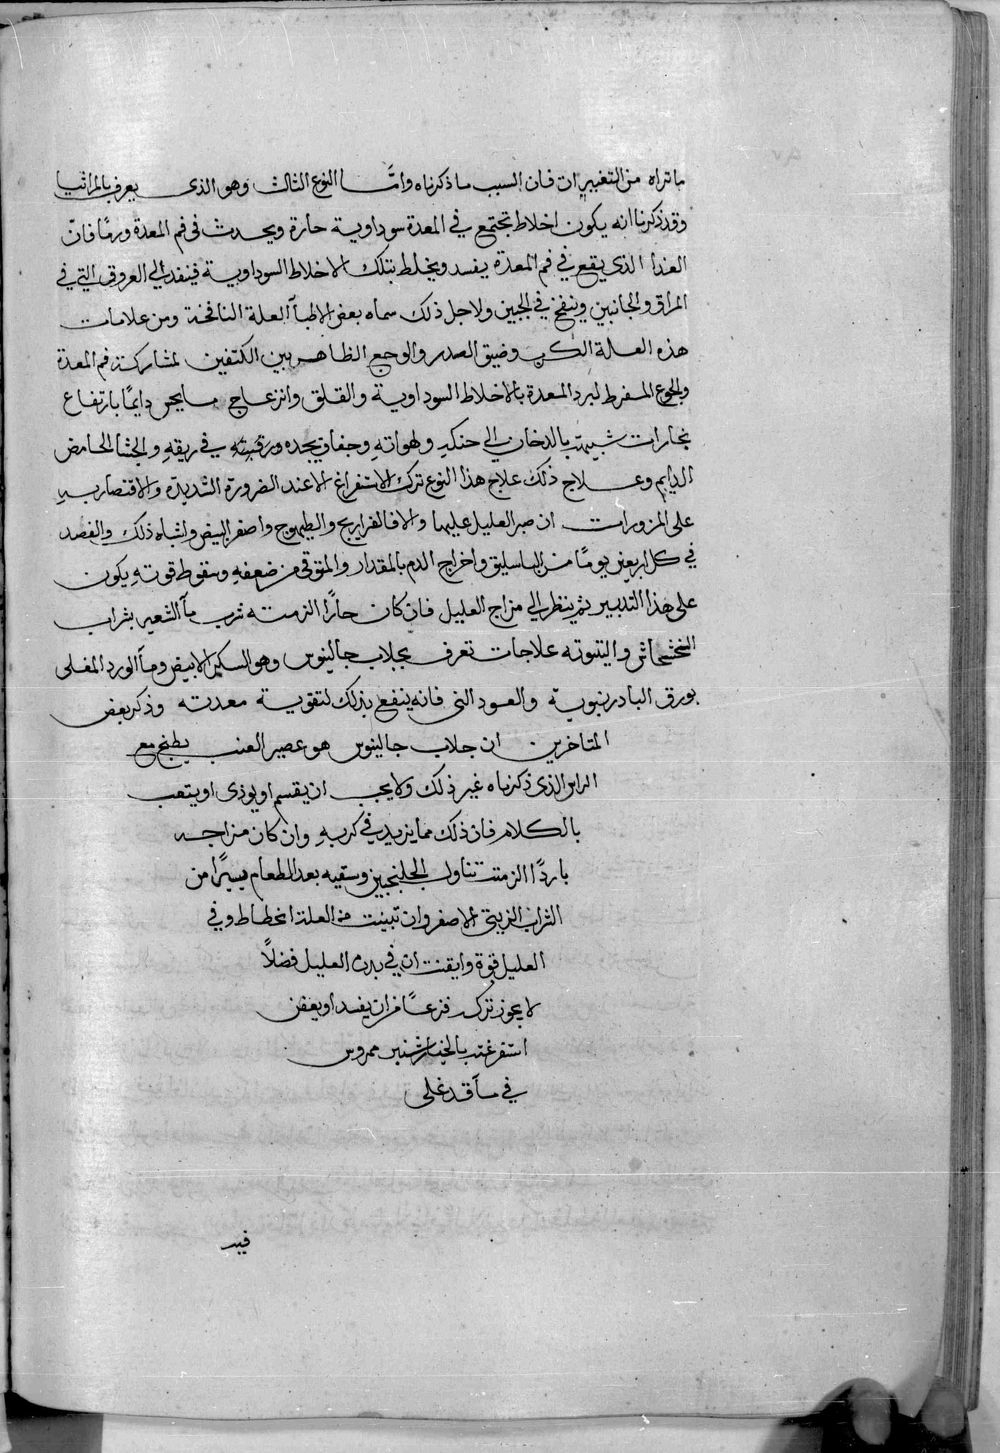 ما تراه من التغييرات فان السبب ما ذكرناه واما النوع الثالث وهو الذي يعرف بالمراقيا
وقد ذكرنا انه يكون اخلاط تجتمع في المعدة سوداوية حارة ويحدث في فم المعدة ورما فان
الغذا الذي يقع في فم المعدة يفسد ويختلط بتلك الاخلاط السوداوية فينفد الي العروق التي في
المراق والجانبين وينفخ في الجبين ولاجل ذلك سماه بعض الاطبآ العلة النافخة ومن علامات
هذه العلة الكرب وضيق الصدر والوجع الظاهر بين الكتفين لمشاركة فم المعدة
والجوع المفرط لبرد المعدة بالاخلاط السوداوية والقلق وانزعاج ما يحس دايما بارتفاع
بخارات شبيهة بالدخان الي حنكه ولهواته وجفاف يجده في ريقه والجشا الحامض
الدايم وعلاج ذلك علاج هذا النوع ترك الاستفراغ الا عند الضرورة الشديدة والاقتصار به
على المزورات ان صبر العليل عليها والا فالفراريج والطيهوج واصفر البيض واشباه ذلك والفصد
في كل اربعين يوما من الباسليق واخراج الدم بالمقدار والتوقي من ضعفه وسقوط قوته يكون
على هذا التدبير ثم ينظر الي مزاج العليل فان كان حارا الزمته شرب مآ الشعير بشراب
الخشخاش واليتوته علاجات تعرف بجلاب جالينوس وهو السكر الابيض ومآ الورد المغلى
بورق البادرنبوية والعود الني فانه ينفع بذلك لتقوية معدته وذكر بعض
المتاخرين ان جلاب جالينوس هو عصير العنب يطبخ مع
الذي ذكرناه غير ذلك ولا يجب ان يقسم او يوذى او يتعب
بالكلام فان ذلك مما يزيد في كربه وان كان مزاجه
باردا الزمته تناول الجلنجبين وسقيه بعد الطعام يسيرا من
الشراب الزيتي الاصفر وان تبينت من العلة انحطاط وفي
العليل قوة وايقنت ان في بدن العليل فضلا
لا يجوز تركه فزعا من ان يفسد او يعفن
استفرغته بالخيارشنبر ممروس
في مآ قد غلى
فيه